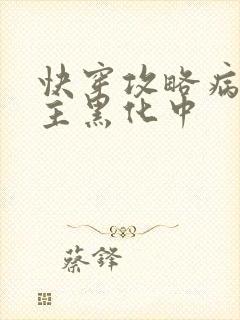 快穿攻略病
主黑化中
蔡铎